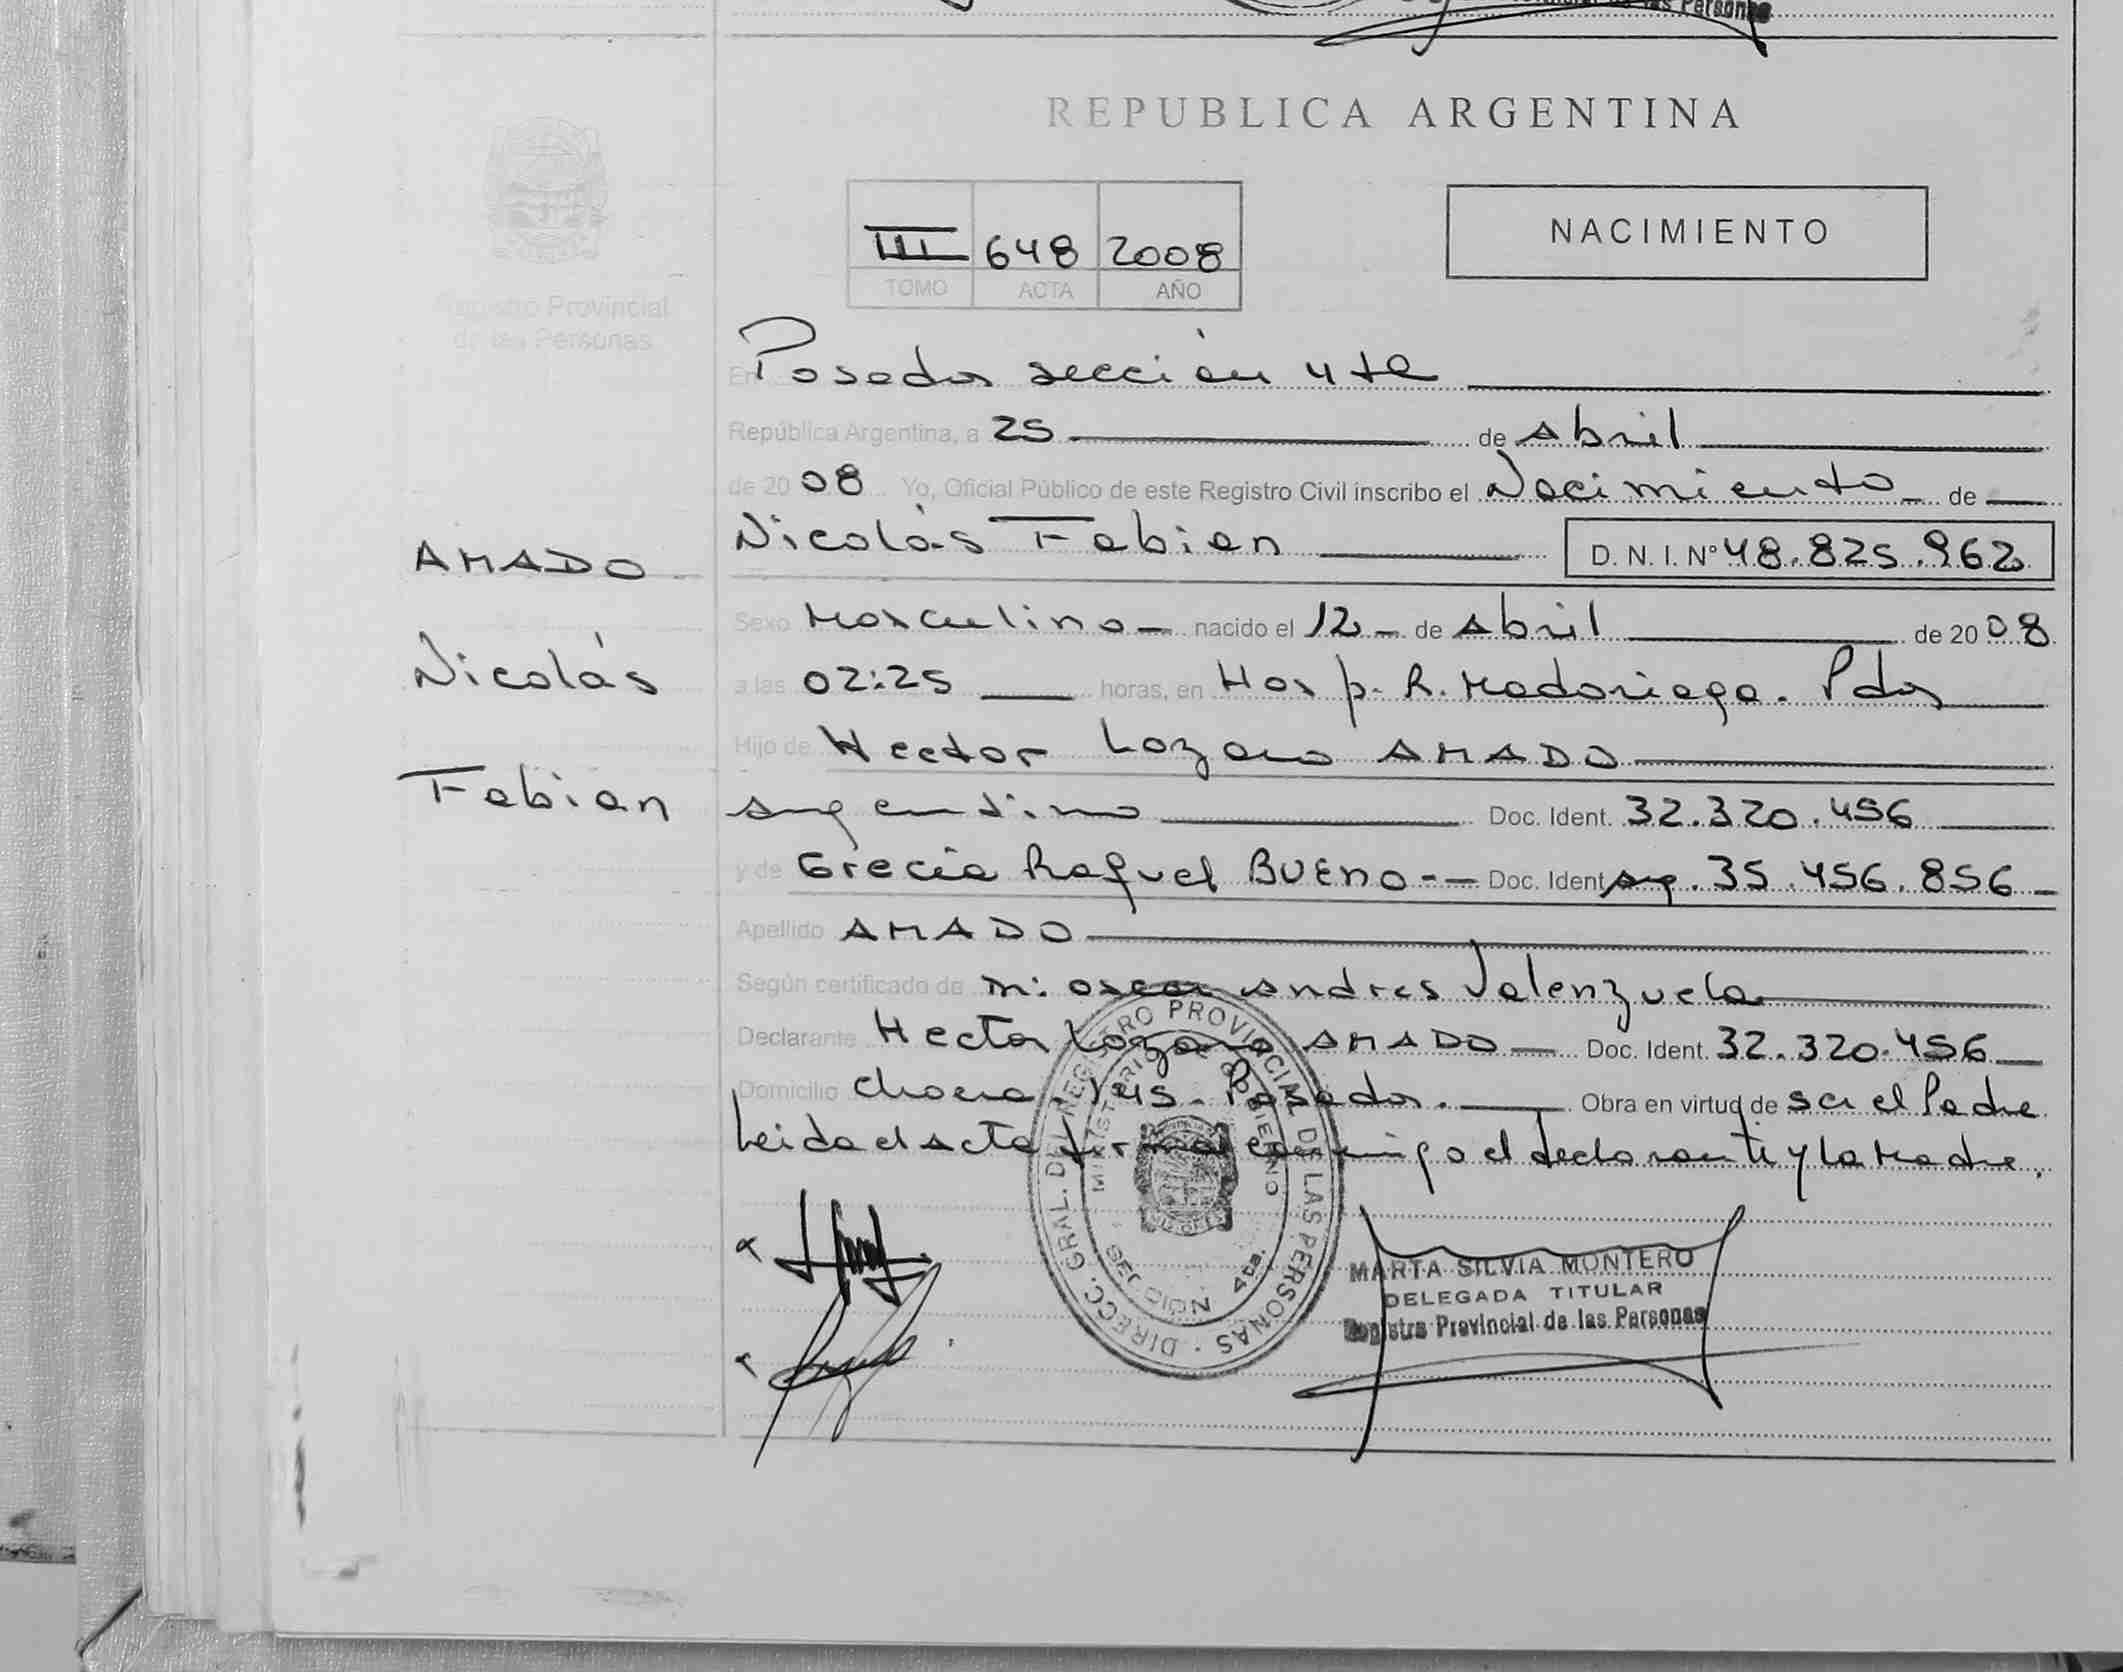 las Personas
REPUBLICA ARGENTINA
Registro Provincial
de las Personas
III 648 2008
TOMO ACTA AÑO
NACIMIENTO
En Posadas sección 4ta
República Argentina, a 25 de Abril
de 2008 Yo, Oficial Público de este Registro Civil inscribo el Nacimiento de
Nicolás Fabian D. N. I. Nº 48.825.962
AMADO
Nicolás
Fabian
Sexo Masculino nacido el 12 de Abril de 2008
a las 02:25 horas, en Hosp. R. Madariaga. Pdas
Hijo de Hector Lozano AMADO
argentino Doc. Ident. 32.320.456
y de Grecia Raquel BUENO-- Doc. Ident arg. 35.456.856
Apellido AMADO
Según certificado de m: oscar Andres Valenzuela
Declarante Hector Lozano AMADO Doc. Ident. 32.320.456
Domicilio Posadas. Obra en virtud de ser el Padre
Leida el acta firman conmigo el declarante y la Madre.
DIRECC. GRAL. DEL REGISTRO PROVINCIAL DE LAS PERSONAS
MINISTERIO DE GOBIERNO
SECCION 4ta.
MARTA SILVIA MONTERO
DELEGADA TITULAR
Registro Provincial de las Personas